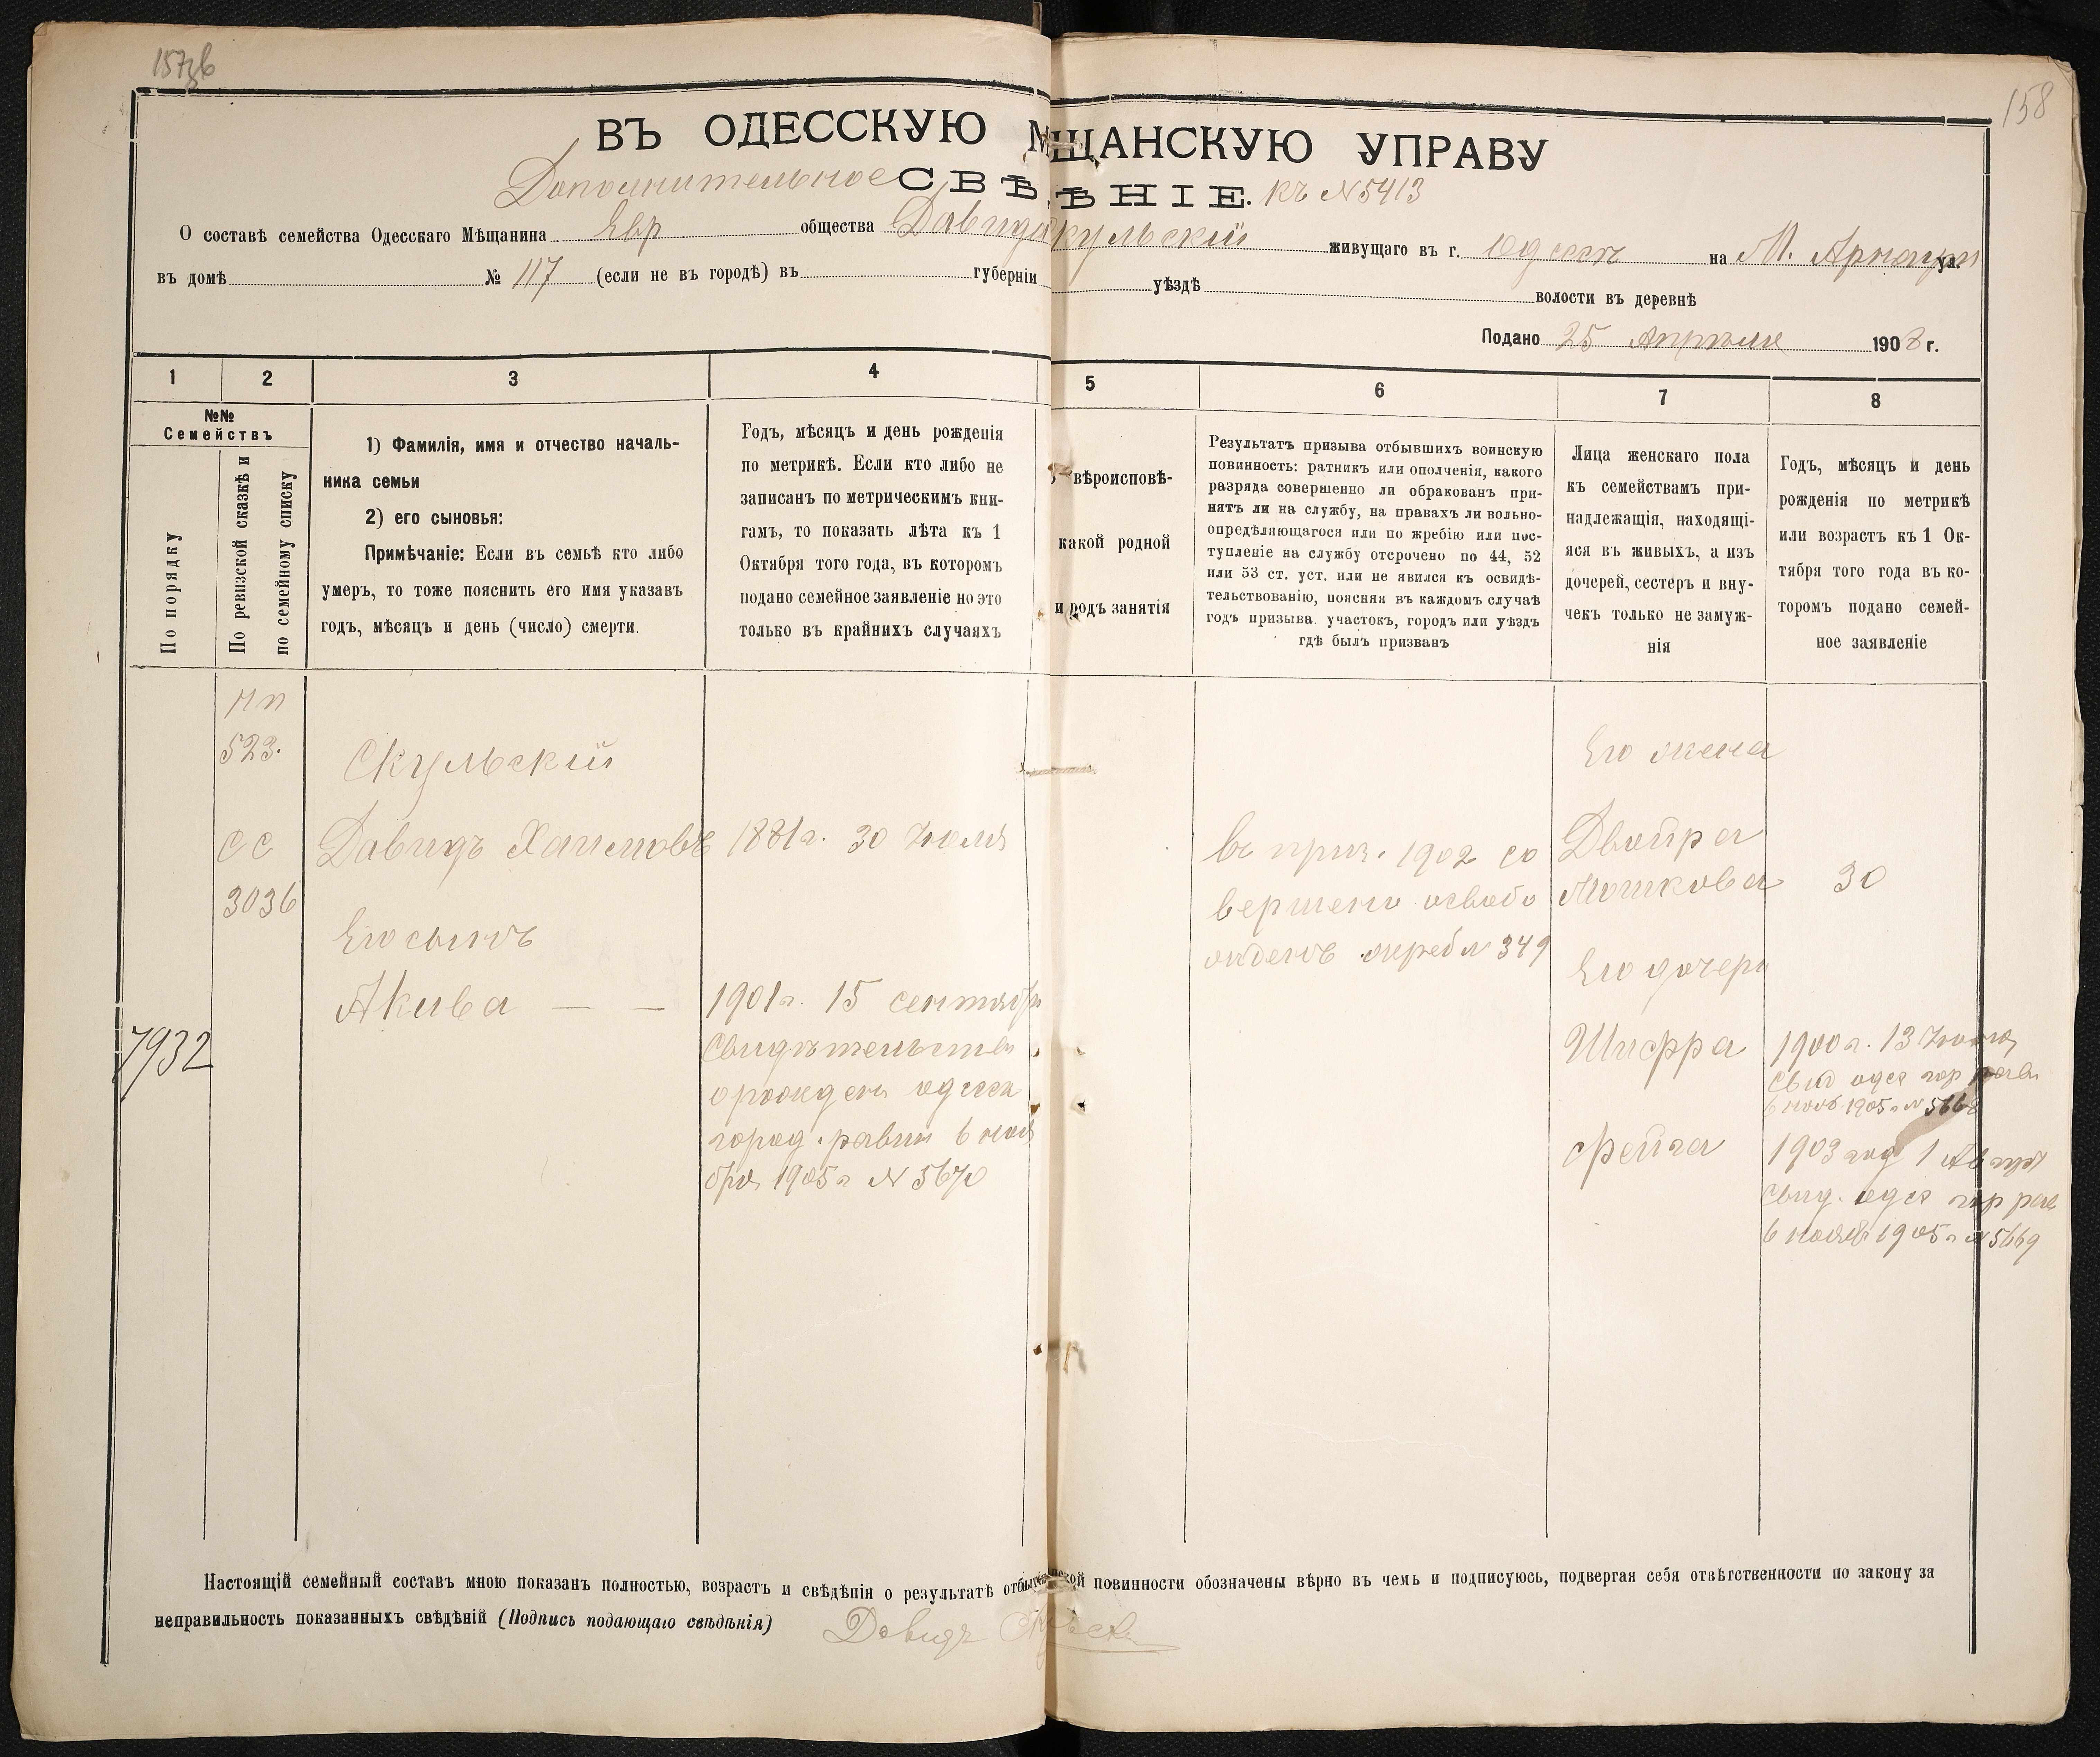 157зв
158
ВЪ ОДЕССКУЮ МЩАНСКУЮ УПРАВУ
Дополнительное СВѢ ѢНІЕ. къ №5413
О составѣ семейства Одесскаго Мѣщанина Евр общества Давида кульскій живущаго въ г. Одессѣ на М. Арнаутс ул.
въ домѣ № 117 (если не въ городѣ) въ губерніи уѣздѣ волости въ деревнѣ
Подано 25 Апрѣля 1908 г.
1 2 3 4 5 6 7 8
№№
Семействъ
По порядку
По ревизской сказкѣ и
по семейному списку
1) Фамилія, имя и отчество началь-
ника семьи
2) его сыновья:
Примѣчаніе: Если въ семьѣ кто либо
умеръ, то тоже пояснить его имя указавъ
годъ, мѣсяцъ и день (число) смерти.
Годъ, мѣсяцъ и день рожденія
по метрикѣ. Если кто либо не
записанъ по метрическимъ кни-
гамъ, то показать лѣта къ 1
Октября того года, въ которомъ
подано семейное заявленіе но это
только въ крайнихъ случаяхъ
вѣроисповѣ-
какой родной
и родъ занятія
Результатъ призыва отбывшихъ воинскую
повинность: ратникъ или ополченія, какого
разряда совершенно ли обракованъ при-
нятъ ли на службу, на правахъ ли вольно-
опредѣляющагося или по жребію или пос-
тупленіе на службу отсрочено по 44, 52
или 53 ст. уст. или не явился къ освидѣ-
тельствованію, поясняя въ каждомъ случаѣ
годъ призыва. участокъ, городъ или уѣздъ
гдѣ былъ призванъ
Лица женскаго пола
къ семействамъ при-
надлежащія, находящі-
яся въ живыхъ, а изъ
дочерей, сестеръ и вну-
чекъ только не замуж-
нія
Годъ, мѣсяцъ и день
рожденія по метрикѣ
или возрастъ къ 1 Ок-
тября того года въ ко-
торомъ подано семей-
ное заявленіе
7932
523.
СС
3036
Скульскій
Давидъ Хаимовъ
Его сынъ
Акива — —
1881г. 30 Іюля
1901г. 15 сентябр
свидѣтельство
о рожден одесск
город. равин 6 нояб
бря 1905г № 5670
въ приз. 1902 со
вершено освобо
жденъ жреб № 349
Его жена
Двойра
Мошкова
Его дочери
Шифра
Фейга
30
1900г. 13 Іюня
Свид одес гор рав
6 нояб 1905г № 5668
1903 год 1 Август
Свид. одес гор рав
6 нояб 1905г № 5669
Настоящій семейный составъ мною показанъ полностью, возрастъ и свѣдѣнія о результатѣ отбы ской повинности обозначены вѣрно въ чемъ и подписуюсь, подвергая себя отвѣтственности по закону за
неправильность показанныхъ свѣдѣній (Подпись подающаго свѣдѣнія) Давидъ